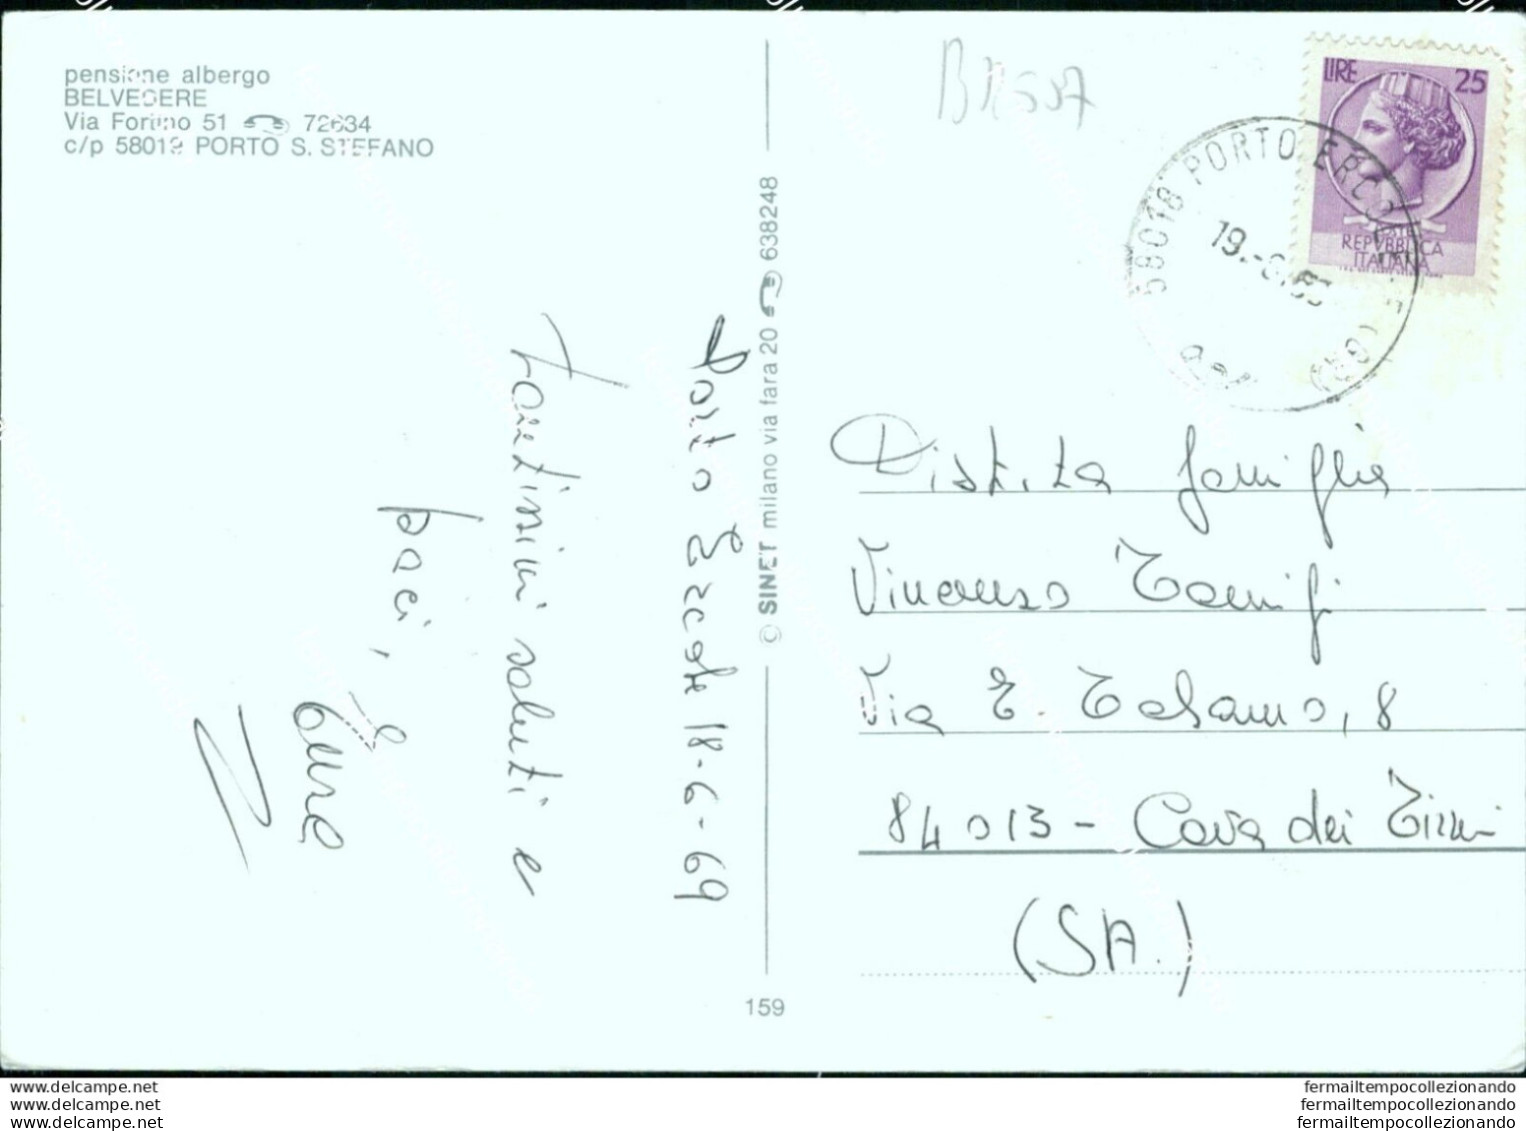 pensione albergo
BELVEDERE
Via Fortino 51 72634
c/p 58019 PORTO S. STEFANO
LIRE 25
POSTE
REPVBBLICA
ITALIANA
58018 PORTO ERCOLE
19.-6.69
Porto Ercole 18-6-69
Tantissimi saluti e
baci,
© SINET milano via fara 20 638248
159
Distinta famiglia
Vincenzo
Via E. Talamo, 8
84013 - Cava dei Tirreni
(SA.)
delcampe.net
delcampe.net
delcampe.net
fermailtempocollezionando
fermailtempocollezionando
fermailtempocollezionando